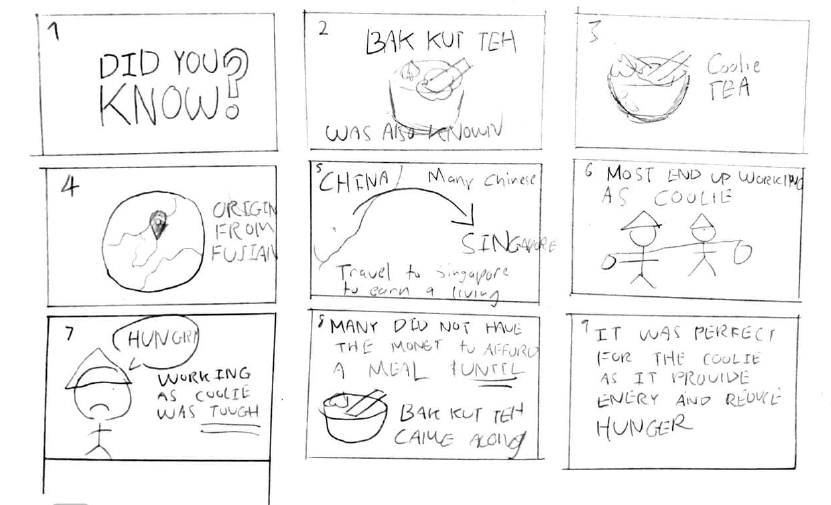 1
DID YOU
KNOW?
2
BAK KUT TEH
WAS ALSO KNOWN
3
Coolie
TEA
4
ORIGIN
FROM
FUSIAN
5
CHINA
Many Chinese
SINGAPORE
Travel to Singapore
to earn a living
6 MOST END UP WORKING
AS COOLIE
7
HUNGRY
WORKING
AS COOLIE
WAS TOUGH
8 MANY DID NOT HAVE
THE MONEY to AFFORD
A MEAL UNTIL
BAK KUT TEH
CAME ALONG
9 IT WAS PERFECT
FOR THE COOLIE
AS IT PROVIDE
ENERY AND REDUCE
HUNGER